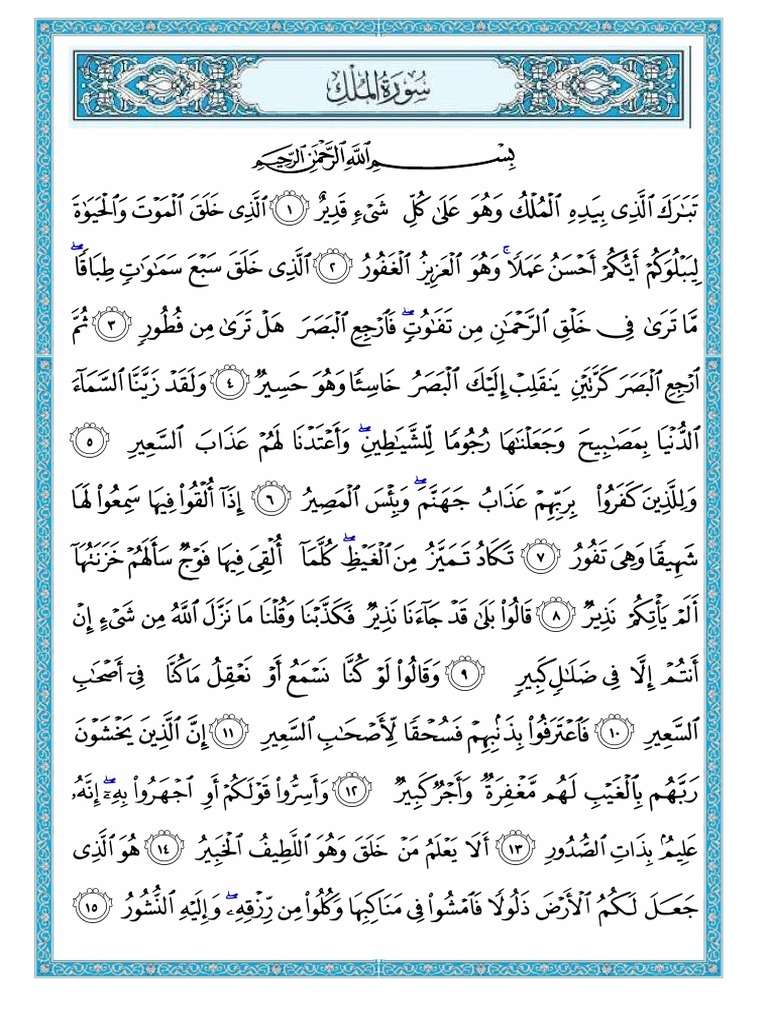 سُورَةُ المُلْكِ
بِسْمِ ٱللَّهِ ٱلرَّحْمَٰنِ ٱلرَّحِيمِ
تَبَٰرَكَ ٱلَّذِى بِيَدِهِ ٱلْمُلْكُ وَهُوَ عَلَىٰ كُلِّ شَىْءٍ قَدِيرٌ ١ ٱلَّذِى خَلَقَ ٱلْمَوْتَ وَٱلْحَيَوٰةَ
لِيَبْلُوَكُمْ أَيُّكُمْ أَحْسَنُ عَمَلًا ۚ وَهُوَ ٱلْعَزِيزُ ٱلْغَفُورُ ٢ ٱلَّذِى خَلَقَ سَبْعَ سَمَٰوَٰتٍ طِبَاقًا ۖ
مَّا تَرَىٰ فِى خَلْقِ ٱلرَّحْمَٰنِ مِن تَفَٰوُتٍ ۖ فَٱرْجِعِ ٱلْبَصَرَ هَلْ تَرَىٰ مِن فُطُورٍ ٣ ثُمَّ
ٱرْجِعِ ٱلْبَصَرَ كَرَّتَيْنِ يَنقَلِبْ إِلَيْكَ ٱلْبَصَرُ خَاسِئًا وَهُوَ حَسِيرٌ ٤ وَلَقَدْ زَيَّنَّا ٱلسَّمَآءَ
ٱلدُّنْيَا بِمَصَٰبِيحَ وَجَعَلْنَٰهَا رُجُومًا لِّلشَّيَٰطِينِ ۖ وَأَعْتَدْنَا لَهُمْ عَذَابَ ٱلسَّعِيرِ ٥
وَلِلَّذِينَ كَفَرُوا۟ بِرَبِّهِمْ عَذَابُ جَهَنَّمَ ۖ وَبِئْسَ ٱلْمَصِيرُ ٦ إِذَآ أُلْقُوا۟ فِيهَا سَمِعُوا۟ لَهَا
شَهِيقًا وَهِىَ تَفُورُ ٧ تَكَادُ تَمَيَّزُ مِنَ ٱلْغَيْظِ ۖ كُلَّمَآ أُلْقِىَ فِيهَا فَوْجٌ سَأَلَهُمْ خَزَنَتُهَآ
أَلَمْ يَأْتِكُمْ نَذِيرٌ ٨ قَالُوا۟ بَلَىٰ قَدْ جَآءَنَا نَذِيرٌ فَكَذَّبْنَا وَقُلْنَا مَا نَزَّلَ ٱللَّهُ مِن شَىْءٍ إِنْ
أَنتُمْ إِلَّا فِى ضَلَٰلٍ كَبِيرٍ ٩ وَقَالُوا۟ لَوْ كُنَّا نَسْمَعُ أَوْ نَعْقِلُ مَا كُنَّا فِىٓ أَصْحَٰبِ
ٱلسَّعِيرِ ١٠ فَٱعْتَرَفُوا۟ بِذَنۢبِهِمْ فَسُحْقًا لِّأَصْحَٰبِ ٱلسَّعِيرِ ١١ إِنَّ ٱلَّذِينَ يَخْشَوْنَ
رَبَّهُم بِٱلْغَيْبِ لَهُم مَّغْفِرَةٌ وَأَجْرٌ كَبِيرٌ ١٢ وَأَسِرُّوا۟ قَوْلَكُمْ أَوِ ٱجْهَرُوا۟ بِهِۦٓ ۖ إِنَّهُۥ
عَلِيمٌۢ بِذَاتِ ٱلصُّدُورِ ١٣ أَلَا يَعْلَمُ مَنْ خَلَقَ وَهُوَ ٱللَّطِيفُ ٱلْخَبِيرُ ١٤ هُوَ ٱلَّذِى
جَعَلَ لَكُمُ ٱلْأَرْضَ ذَلُولًا فَٱمْشُوا۟ فِى مَنَاكِبِهَا وَكُلُوا۟ مِن رِّزْقِهِۦ ۖ وَإِلَيْهِ ٱلنُّشُورُ ١٥